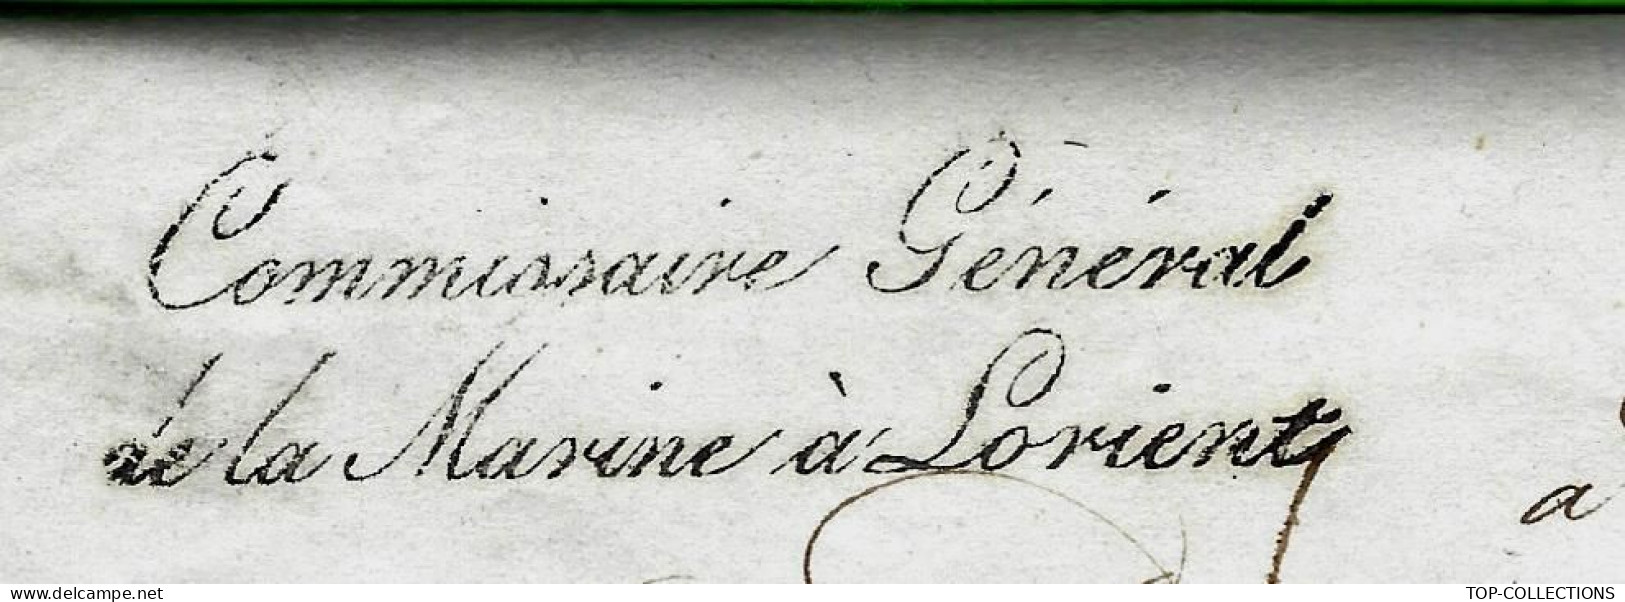 Commissaire Général
de la Marine à Lorient
a
www.delcampe.net
TOP-COLLECTIONS